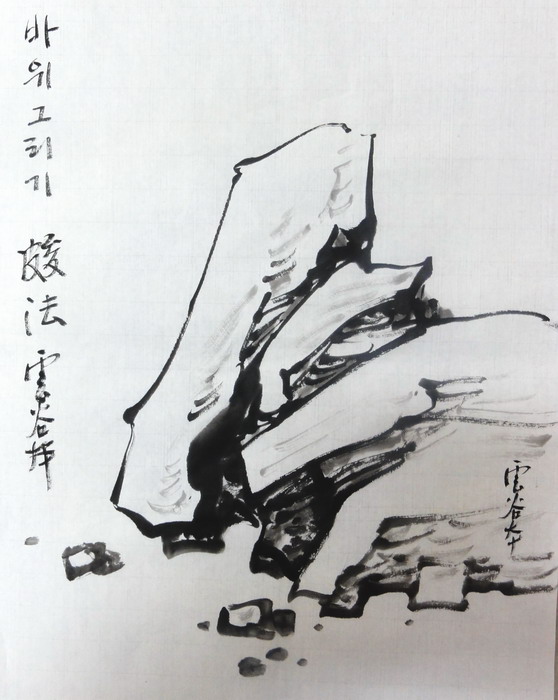 바위그리기 皴法 雲谷
雲谷